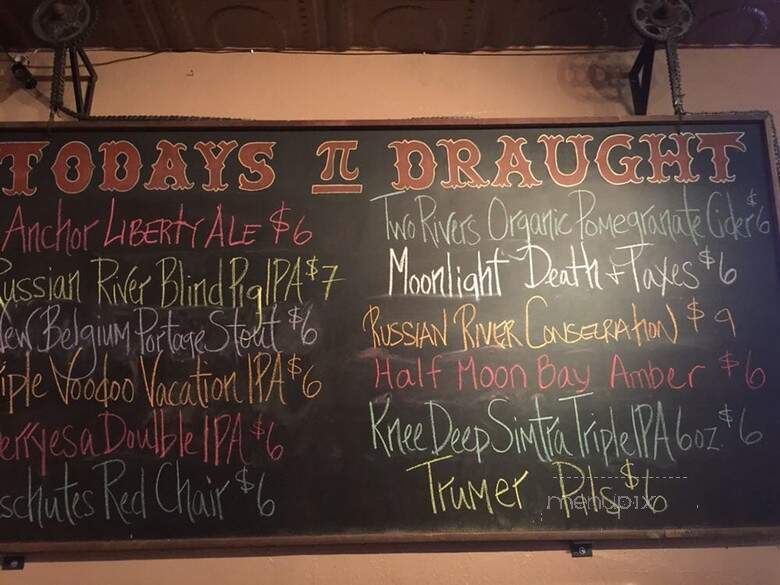 TODAYS π DRAUGHT
Anchor LIBERTY ALE $6
ussian River Blind Pig IPA $7
ew Belgium Portage Stout $6
iple Voodoo Vacation IPA $6
erryesa Doulble IPA $6
schutes Red Chair $6
Two Rivers Organic Pomegranate Cider $6
Moonlight Death & Taxes $6
RUSSIAN RIVER CONSECRATION $9
Half Moon Bay Amber $6
Knee Deep Simtra Triple IPA 6oz. $6
Trumer Pils $6
menupix